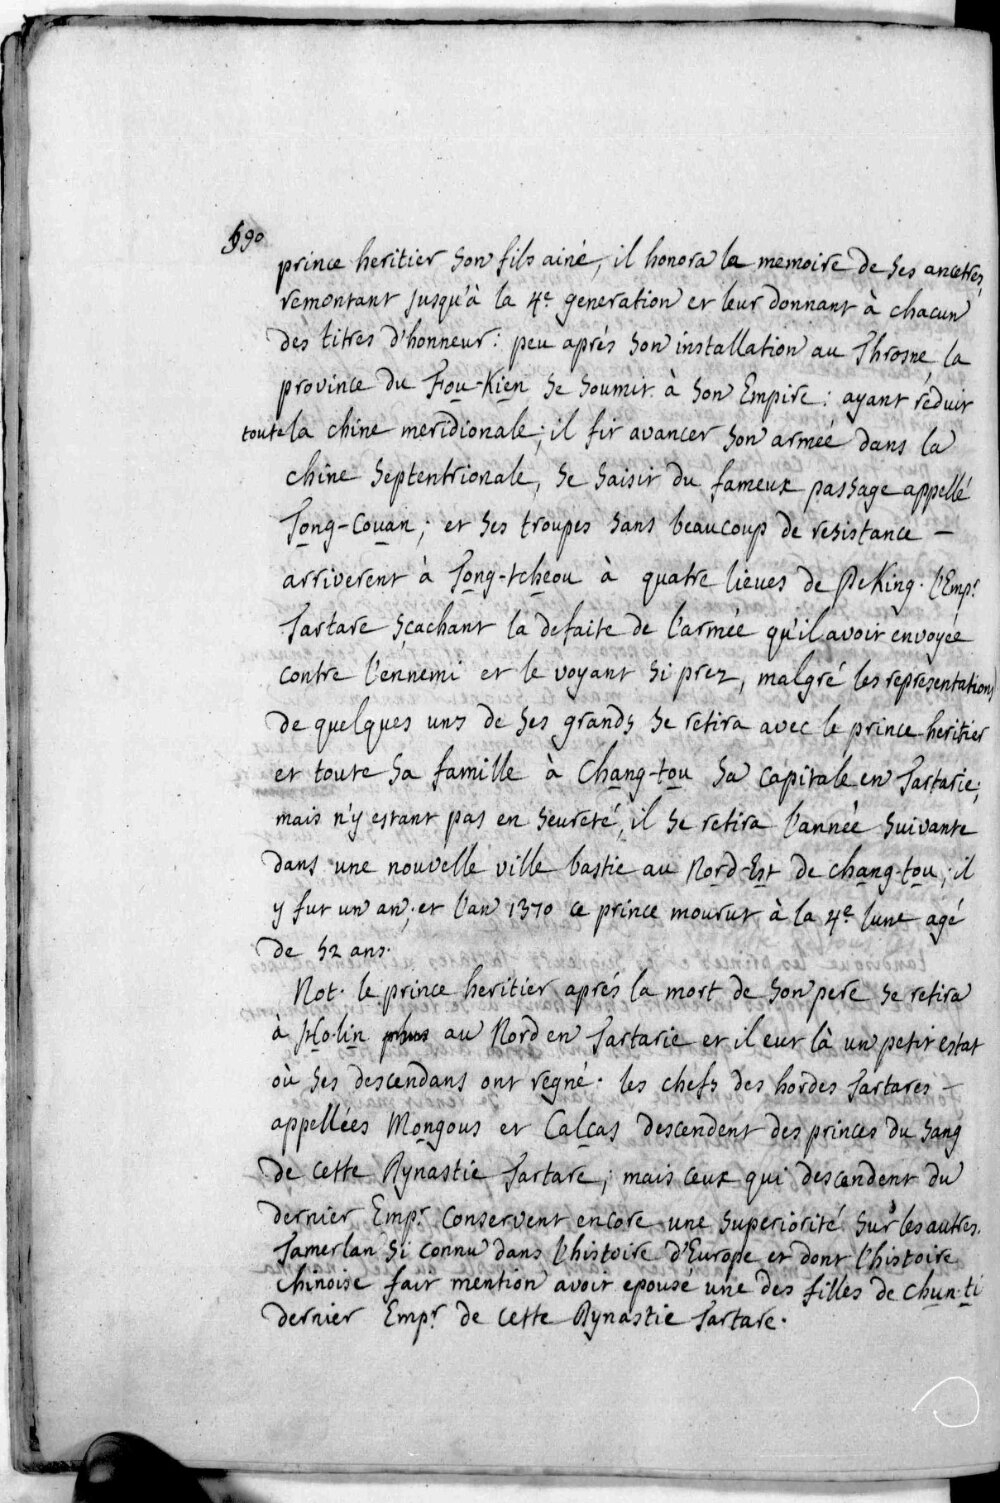 590
prince heritier son fils ainé, il honora la memoire de ses ancetres,
remontant jusqu'à la 4e generation et leur donnant à chacun
des titres d'honneur : peu aprés son installation au Throsne, la
province du Fou-Kien se soumit à son Empire : ayant réduit
toute la chine meridionale ; il fit avancer son armée dans la
chine septentrionale, se saisit du fameux passage appellé
Tong-Couan ; et ses troupes sans beaucoup de resistance -
arriverent à Tong-tcheou à quatre lieues de PeKing. l'Empr
Tartare sçachant la defaite de l'armée qu'il avoit envoyée
contre l'ennemi et le voyant si prez, malgré les representations
de quelques uns de ses grands se retira avec le prince heritier
et toute sa famille à Chang-tou sa capitale en Tartarie ;
mais n'y estant pas en seureté, il se retira l'année suivante
dans une nouvelle ville bastie au Nord-Est de chang-tou ; il
y fut un an ; et l'an 1370 ce prince mourut à la 4e lune agé
de 52 ans.
Not. le prince heritier aprés la mort de son pere se retira
à Ho-lin plus au Nord en Tartarie et il eut là un petit estat
où ses descendans ont regné. les chefs des hordes Tartares -
appellées Mongous et Calcas descendent des princes du sang
de cette Dynastie Tartare ; mais ceux qui descendent du
dernier Empr conservent encore une superiorité sur les autres.
Tamerlan si connu dans l'histoire d'Europe et dont l'histoire
chinoise fait mention avoit epousé une des filles de chun-ti
dernier Empr de cette Dynastie Tartare.